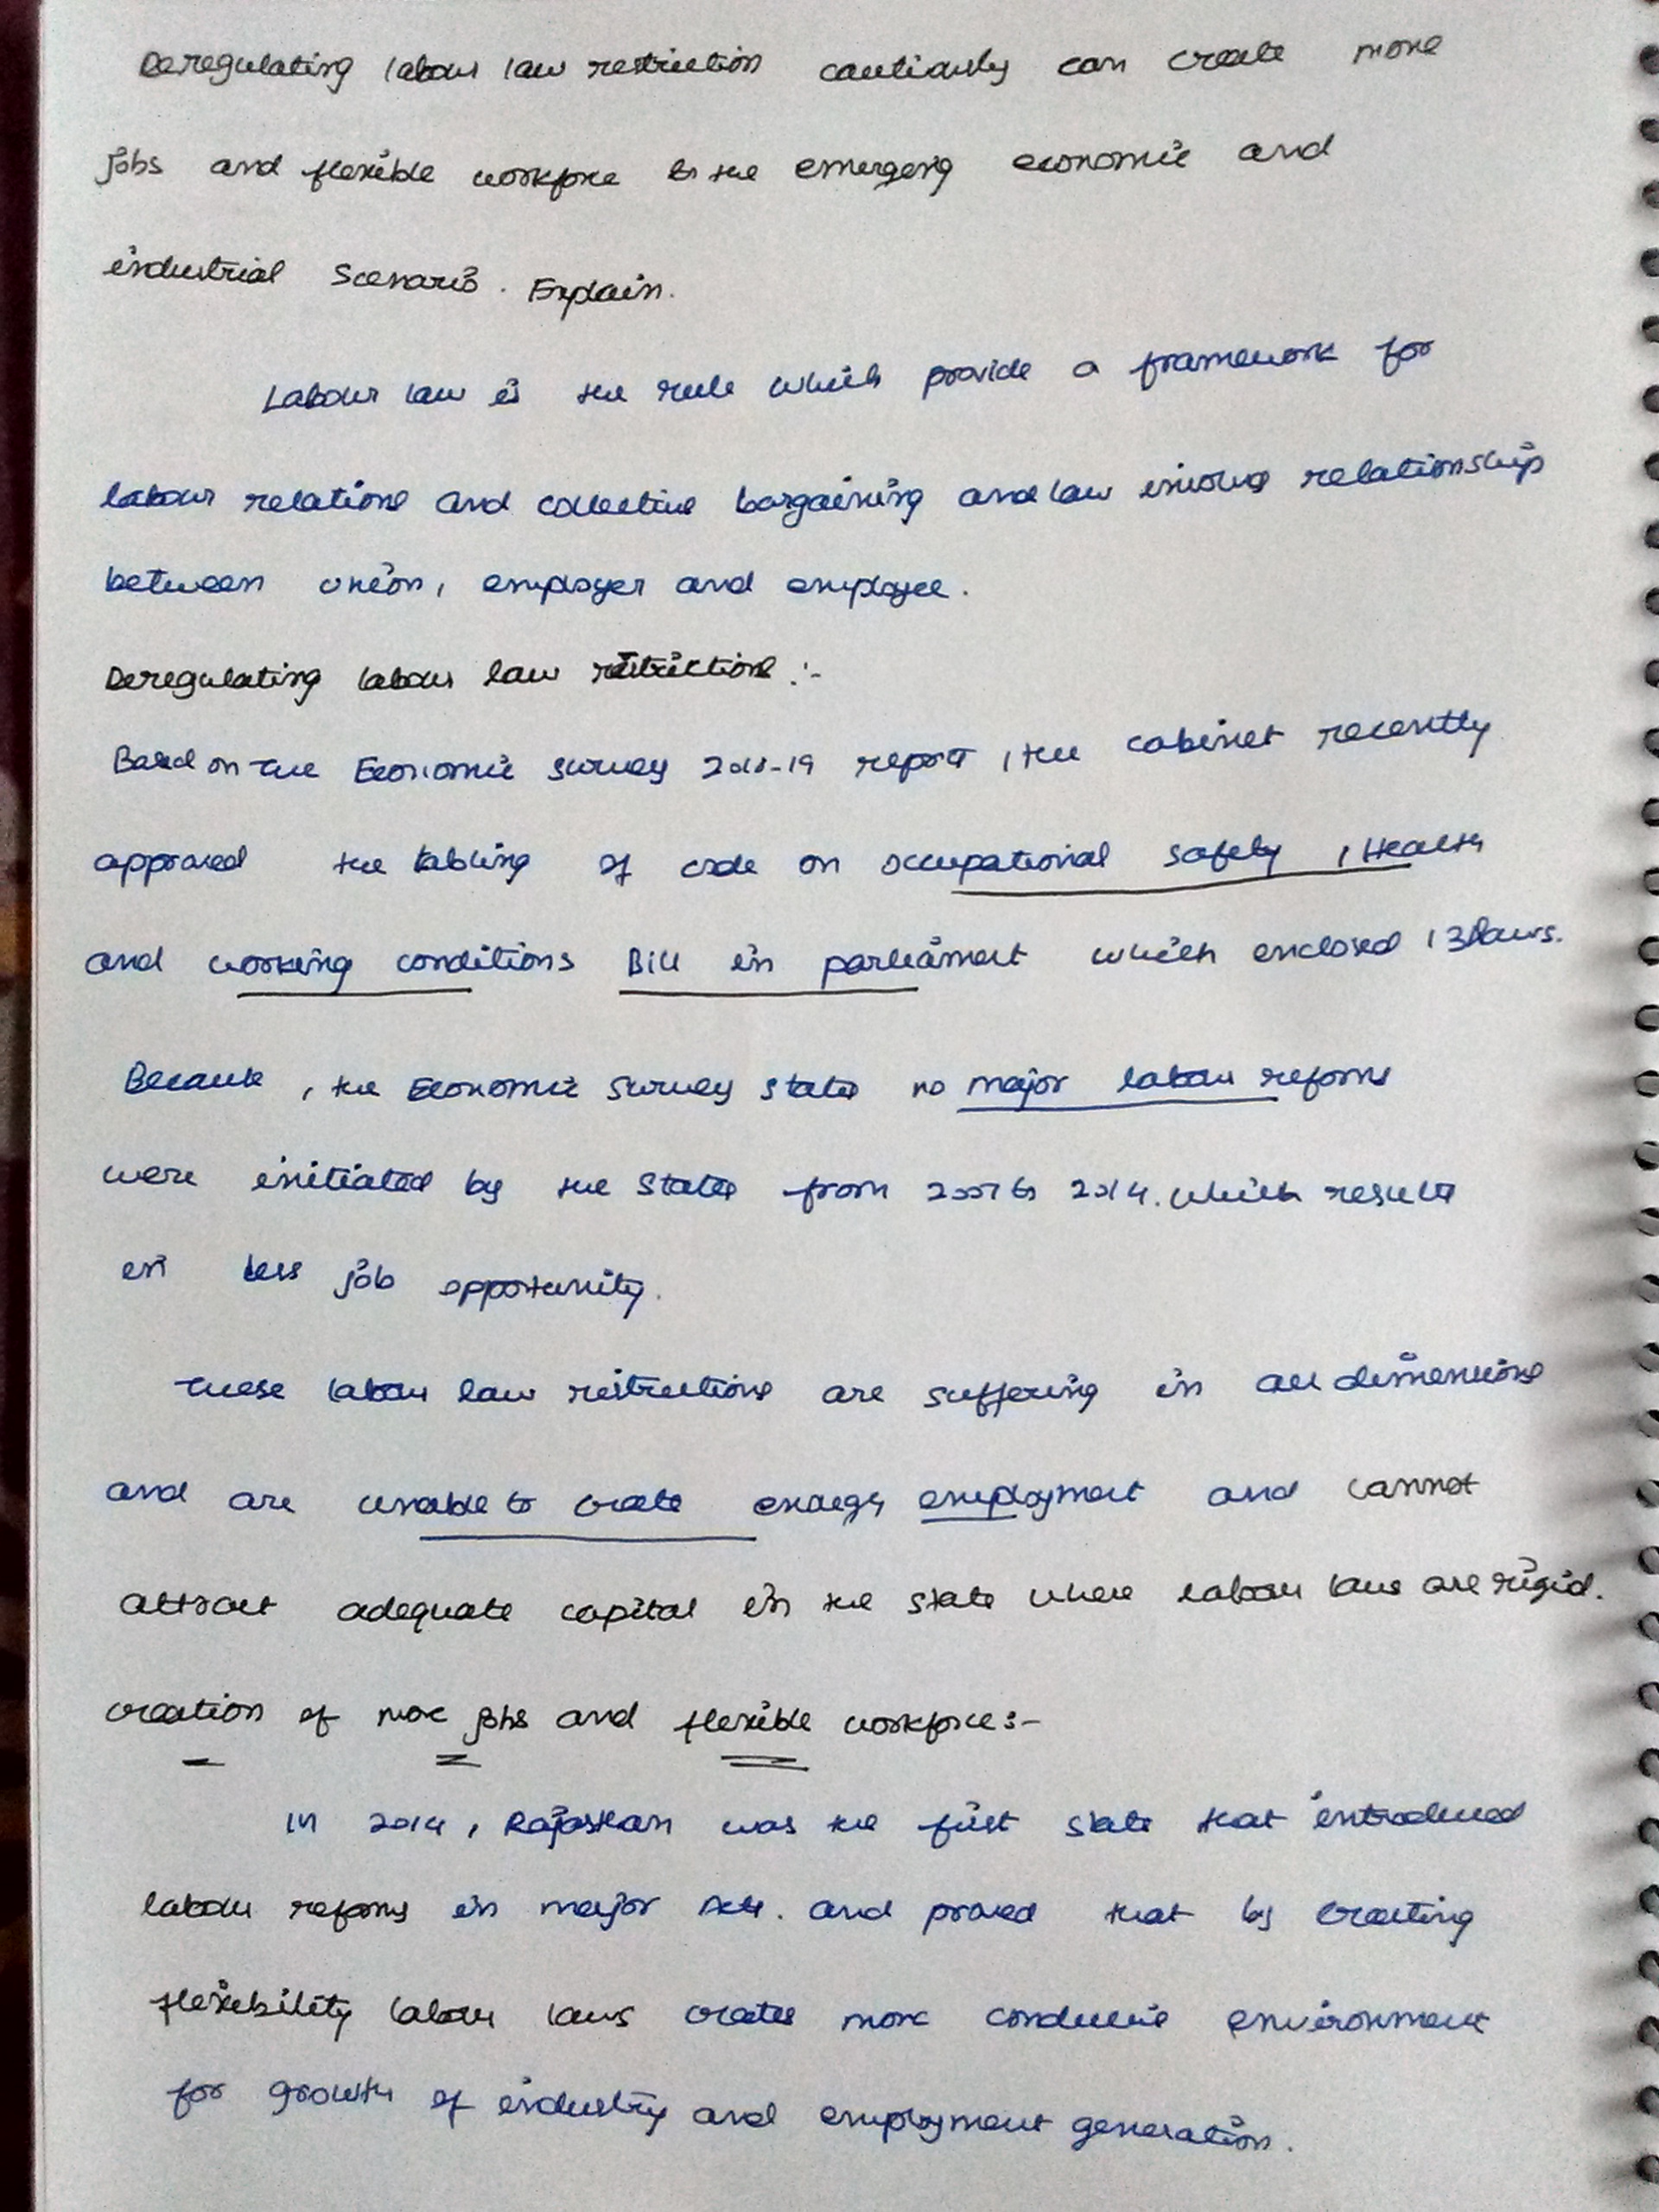 Deregulating labour law restriction cautiously can create more
jobs and flexible workforce to the emerging economic and
industrial Scenario. Explain.
Labour law is the rule which provide a framework for
labour relations and collective bargaining and law involves relationship
between union, employer and employee.
Deregulating labour law restrictions :-
Based on the Economic survey 2018-19 report, the cabinet recently
approved the tabling of code on occupational safety, Health
and working conditions Bill in parliament which enclosed 13 laws.
Because, the Economic Survey states no major labour reforms
were initiated by the States from 2007 to 2014. which results
in less job opportunity.
These labour law restrictions are suffering in all dimensions
and are unable to create enough employment and cannot
attract adequate capital in the state where labour laws are rigid.
Creation of more jobs and flexible workforce:-
In 2014, Rajasthan was the first state that introduced
labour reforms in major Acts. and proved that by creating
flexibility labour laws creates more conducive environment
for growth of industry and employment generation.